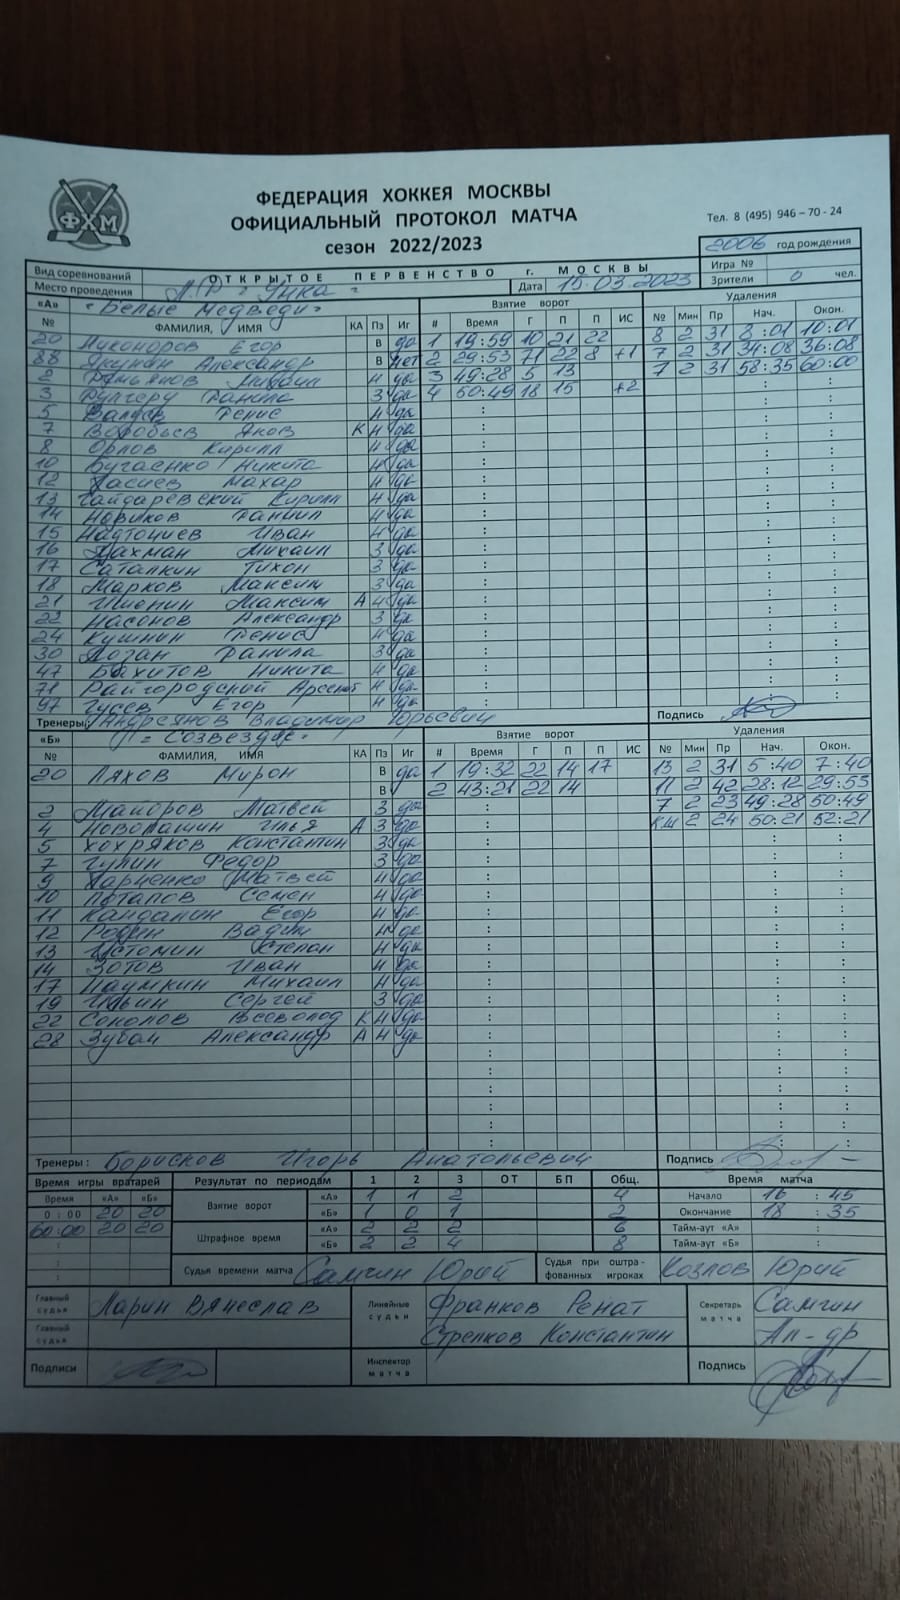 ФХМ
ФЕДЕРАЦИЯ ХОККЕЯ МОСКВЫ
ОФИЦИАЛЬНЫЙ ПРОТОКОЛ МАТЧА
сезон 2022/2023
Тел. 8 (495) 946 – 70 - 24
2006 год рождения
Вид соревнований ОТКРЫТОЕ ПЕРВЕНСТВО г. МОСКВЫ Игра №
Место проведения Л.Д. "Умка" Дата 15.03.2023 Зрители 0 чел.
«А» "Белые Медведи" Взятие ворот Удаления
№ ФАМИЛИЯ, ИМЯ КА Пз Иг # Время Г П П ИС № Мин Пр Нач. Окон.
20 Никоноров Егор В да 1 19:59 10 21 22 8 2 31 8:01 10:01
88 Якунин Александр В нет 2 29:53 71 22 8 +1 7 2 31 34:08 36:08
2 Михаил Н да 3 49:28 5 13 7 2 31 58:35 60:00
3 Данила З да 4 50:49 18 15 +2
5 Валуев Денис Н да
7 Воробьев Яков К Н да
8 Орлов Кирилл Н да
10 Бугаенко Никита Н да
12 Махар Н да
13 Гайдаревский Кирилл Н да
14 Новиков Даниил Н да
15 Надточиев Иван Н да
16 Михаил З да
17 Саталкин Тихон З да
18 Марков Максим З да
21 Максим А Н да
22 Насонов Александр З да
24 Кушнин Денис Н да
30 Лозан Данила З да
47 Бахитов Никита Н да
71 Райгородский Арсений Н да
97 Гусев Егор Н да
Тренеры: Андреянов Владимир Юрьевич Подпись
«Б» "Созвездие" Взятие ворот Удаления
№ ФАМИЛИЯ, ИМЯ КА Пз Иг # Время Г П П ИС № Мин Пр Нач. Окон.
20 Ляхов Мирон В да 1 19:32 22 14 17 13 2 31 5:40 7:40
В 2 43:21 22 14 11 2 42 28:12 29:53
2 Майоров Матвей З да 7 2 23 49:28 50:49
4 Новопашин Илья А З да КШ 2 24 50:21 52:21
5 Хохряков Константин З да
7 Гулин Федор З да
9 Ларченко Матвей Н да
10 Потапов Семен Н да
11 Кандалин Егор Н да
12 Родин Вадим Н да
13 Истомин Степан Н да
14 Зотов Иван Н да
17 Наумкин Михаил Н да
19 Ильин Сергей З да
22 Соколов Всеволод К Н да
28 Александр А Н да
Тренеры: Борисков Игорь Анатольевич Подпись
Время игры вратарей Результат по периодам 1 2 3 ОТ БП Общ. Время матча
Время «А» «Б» Взятие ворот «А» 1 1 2 4 Начало 16:45
0:00 20 20 «Б» 1 0 1 2 Окончание 18:35
60:00 20 20 Штрафное время «А» 2 2 2 6 Тайм-аут «А»
«Б» 2 2 4 8 Тайм-аут «Б»
Судья времени матча Самгин Юрий Судья при оштрафованных игроках Козлов Юрий
Главный судья Ларин Вячеслав Линейные судьи Франков Ренат Секретарь матча Самгин
Главный судья Стрелков Константин Ал-др
Подписи Инспектор матча Подпись